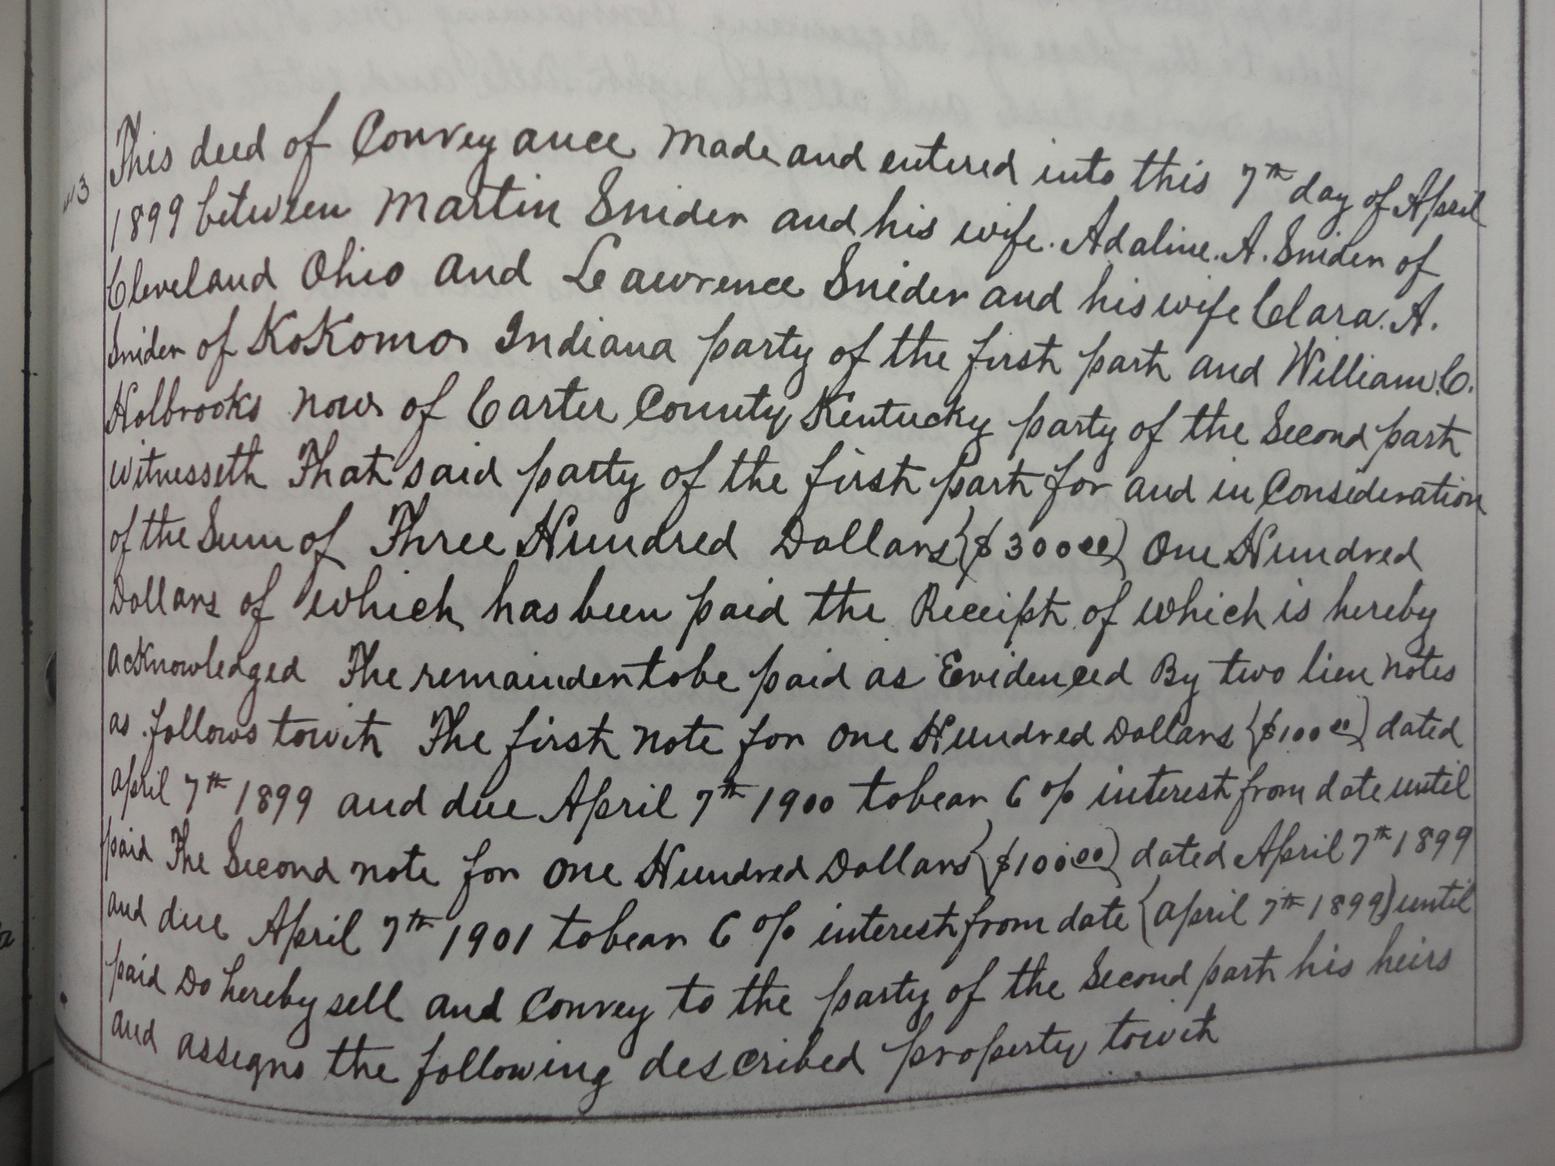 This deed of Conveyance made and entered into this 7th day of April
1899 between Martin Snider and his wife. Adaline. A. Snider of
Cleveland Ohio and Leawrence Snider and his wife Clara. A.
Snider of KoKomo Indiana party of the first part and William. C.
Holbrooks now of Carter County Kentucky party of the Second part
witnesseth That said party of the first part for and in Consideration
of the Sum of Three Hundred Dollars {$300 00} One Hundred
Dollars of which has been paid the Receipt of which is hereby
acKnowledged The remainder to be paid as Evidenced By two lien notes
as follows towit The first note for One Hundred Dollars {$100 00} dated
april 7th 1899 and due April 7th 1900 to bear 6 % interest from date until
paid The Second note for One Hundred Dollars {$100 00} dated April 7th 1899
and due April 7th 1901 to bear 6 % interest from date {april 7th 1899} until
paid Do hereby sell and Convey to the party of the Second part his heirs
and assigns the following described property towit